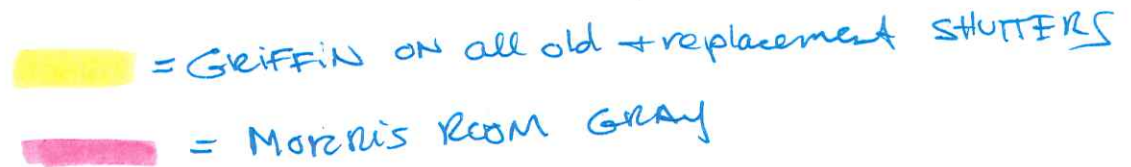 = GRiFFiN ON all old + replacement SHUTTERS
= MORRiS ROOM GRAY